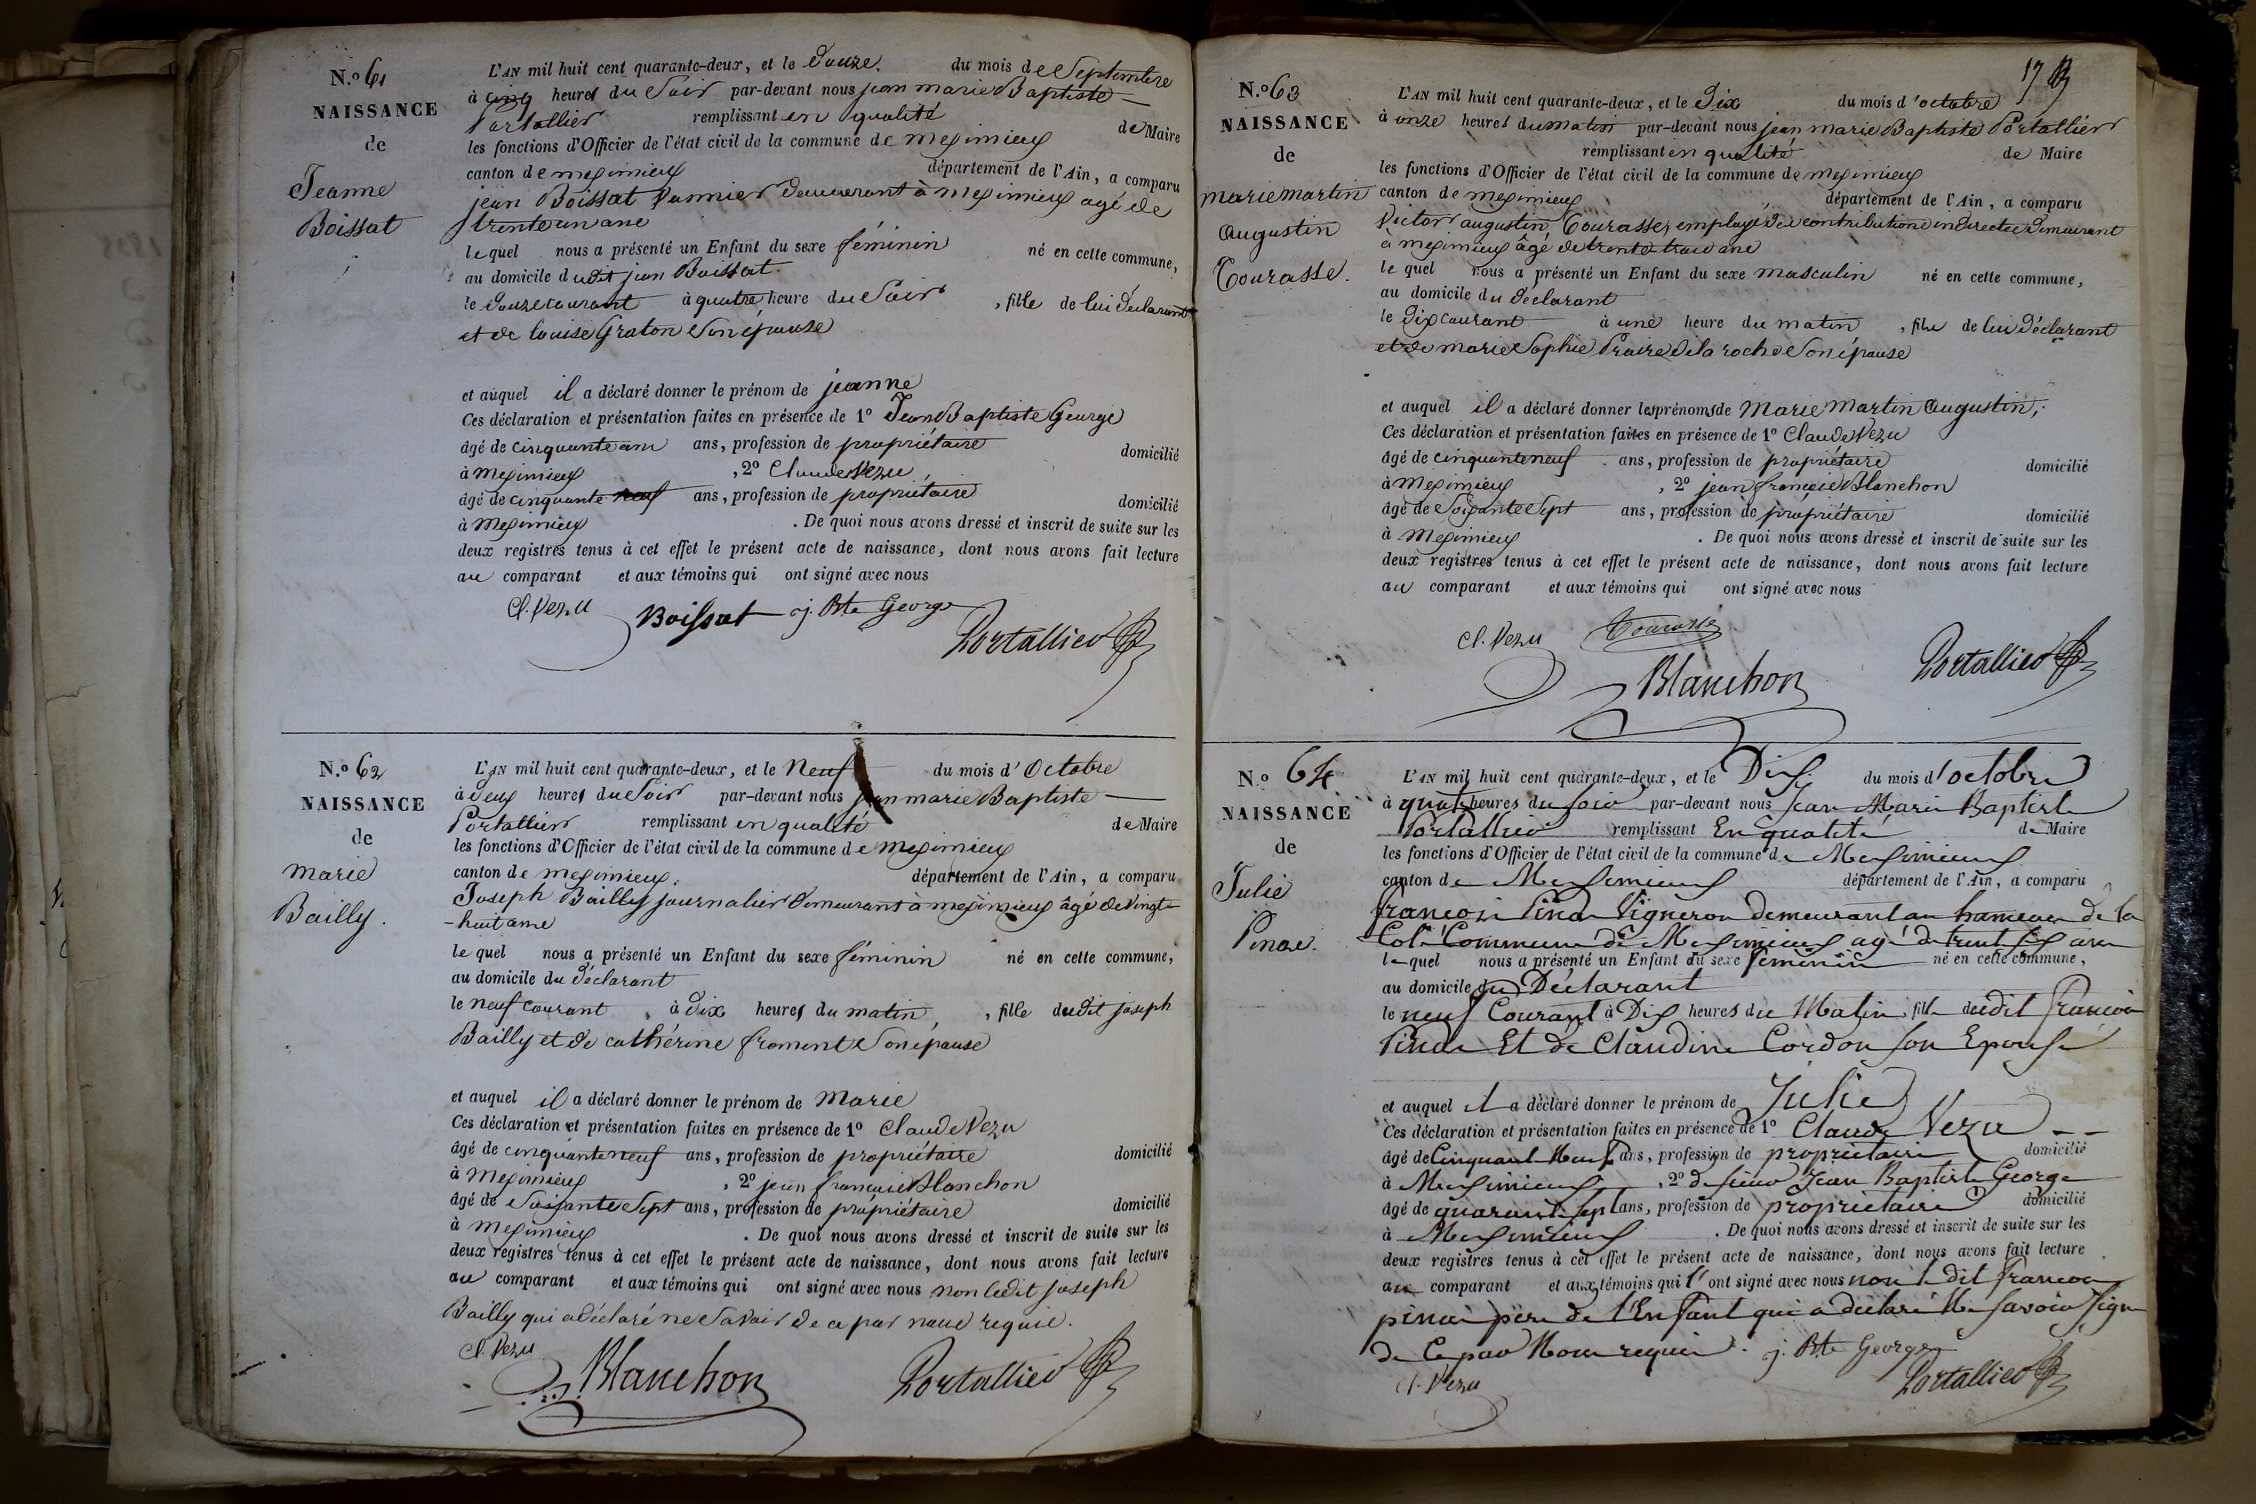 N.o 61
NAISSANCE
de
Jeanne
Boissat
L'AN mil huit cent quarante-deux, et le Douze du mois de Septembre
à cinq heures du Soir par-devant nous jean marie Baptiste
Portallier remplissant en qualité de Maire
les fonctions d'Officier de l'état civil de la commune de meximieux
canton de meximieux département de l'Ain, a comparu
jean Boissat vannier demeurant à meximieux agé de
trente un ans
lequel nous a présenté un Enfant du sexe féminin né en cette commune,
au domicile dudit jean Boissat
le douze courant à quatre heure du Soir, fille de lui déclarant
et de louise Graton son épouse
et auquel il a déclaré donner le prénom de jeanne
Ces déclaration et présentation faites en présence de 1o Jean Baptiste George
âgé de cinquante ans, profession de propriétaire domicilié
à Meximieux, 2o Claude Vezu,
âgé de cinquante neuf ans, profession de propriétaire domicilié
à Meximieux. De quoi nous avons dressé et inscrit de suite sur les
deux registres tenus à cet effet le présent acte de naissance, dont nous avons fait lecture
au comparant et aux témoins qui ont signé avec nous
Cl. Vezu Boissat j. Bte George
Portallier
N.o 62
NAISSANCE
de
marie
Bailly.
L'AN mil huit cent quarante-deux, et le Neuf du mois d'Octobre
à deux heures du Soir par-devant nous jean marie Baptiste
Portallier remplissant en qualité de Maire
les fonctions d'Officier de l'état civil de la commune de meximieux
canton de meximieux. département de l'Ain, a comparu
Joseph Bailly journalier demeurant à meximieux âgé de vingt
-huit ans
lequel nous a présenté un Enfant du sexe féminin né en cette commune,
au domicile du déclarant
le neuf courant à dix heures du matin, fille dudit joseph
Bailly et de cathérine froment son épouse
et auquel il a déclaré donner le prénom de Marie
Ces déclaration et présentation faites en présence de 1o Claude Vezu
âgé de cinquante neuf ans, profession de propriétaire domicilié
à Meximieux, 2o jean françois Blanchon
âgé de Soixante Sept ans, profession de propriétaire domicilié
à Meximieux. De quoi nous avons dressé et inscrit de suite sur les
deux registres tenus à cet effet le présent acte de naissance, dont nous avons fait lecture
au comparant et aux témoins qui ont signé avec nous non ledit joseph
Bailly qui a déclaré ne Savoir de ce par nous requis.
Cl. Vezu
Blanchon Portallier
17
N.o 63
NAISSANCE
de
marie martin
augustin
Tourasse.
L'AN mil huit cent quarante-deux, et le Dix du mois d'octobre
à onze heures du matin par-devant nous jean marie Baptiste Portallier
remplissant en qualité de Maire
les fonctions d'Officier de l'état civil de la commune de meximieux
canton de meximieux département de l'Ain, a comparu
Victor augustin Tourasse, employé des contributions indirectes demeurant
à meximieux âgé de trente trois ans
lequel nous a présenté un Enfant du sexe masculin né en cette commune,
au domicile du déclarant
le dix courant à une heure du matin, fils de lui déclarant
et de marie Sophie Praire de la roche son épouse
et auquel il a déclaré donner les prénoms de Marie Martin Augustin,
Ces déclaration et présentation faites en présence de 1o Claude Vezu
âgé de cinquante neuf ans, profession de propriétaire domicilié
à Meximieux, 2o jean françois Blanchon
âgé de Soixante Sept ans, profession de propriétaire domicilié
à Meximieux. De quoi nous avons dressé et inscrit de suite sur les
deux registres tenus à cet effet le présent acte de naissance, dont nous avons fait lecture
au comparant et aux témoins qui ont signé avec nous
Cl. Vezu Tourasse
Blanchon Portallier
N.o 64
NAISSANCE
de
Julie
Pinae.
L'AN mil huit cent quarante-deux, et le Dix du mois d'octobre
à quatre heures du soir par-devant nous Jean Marie Baptiste
Portallier remplissant En qualité de Maire
les fonctions d'Officier de l'état civil de la commune de Meximieux
canton de Meximieux département de l'Ain, a comparu
françois Vigneron demeurant au hameau de la
Cote Commune de Meximieux agé de trent six ans
lequel nous a présenté un Enfant du sexe féminin né en cette commune,
au domicile du Déclarant
le neuf Courant à Dix heures du Matin, fille dudit françois
Et de Claudine Cordon son Epouse
et auquel il a déclaré donner le prénom de Julie
Ces déclaration et présentation faites en présence de 1o Claude Vezu
âgé de Cinquante Neuf ans, profession de propriétaire domicilié
à Meximieux, 2o de sieur Jean Baptiste George
âgé de quarante sept ans, profession de propriétaire domicilié
à Meximieux. De quoi nous avons dressé et inscrit de suite sur les
deux registres tenus à cet effet le présent acte de naissance, dont nous avons fait lecture
au comparant et aux témoins qui l'ont signé avec nous non le dit françois
père de l'Enfant qui a déclaré Ne savoir signe
de Ce par Nous requis. j. Bte George
Cl. Vezu Portallier